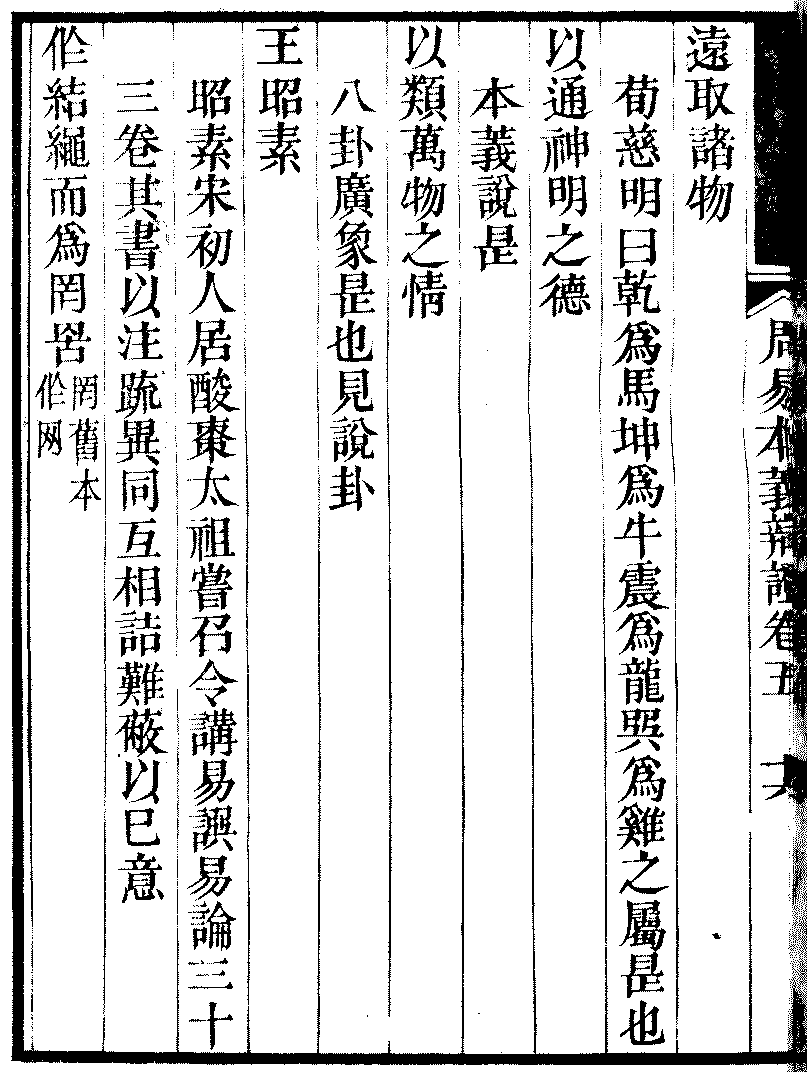 周易本義辯證卷五
遠取諸物
荀慈明曰乾爲馬坤爲牛震爲龍巽爲雞之屬是也
以通神明之德
本義說是
以類萬物之情
八卦廣象是也見說卦
王昭素
昭素宋初人居酸棗太祖嘗召令講易譔易論三十
三卷其書以注疏異同互相詰難蔽以巳意
作結繩而爲罔罟罔舊本作网